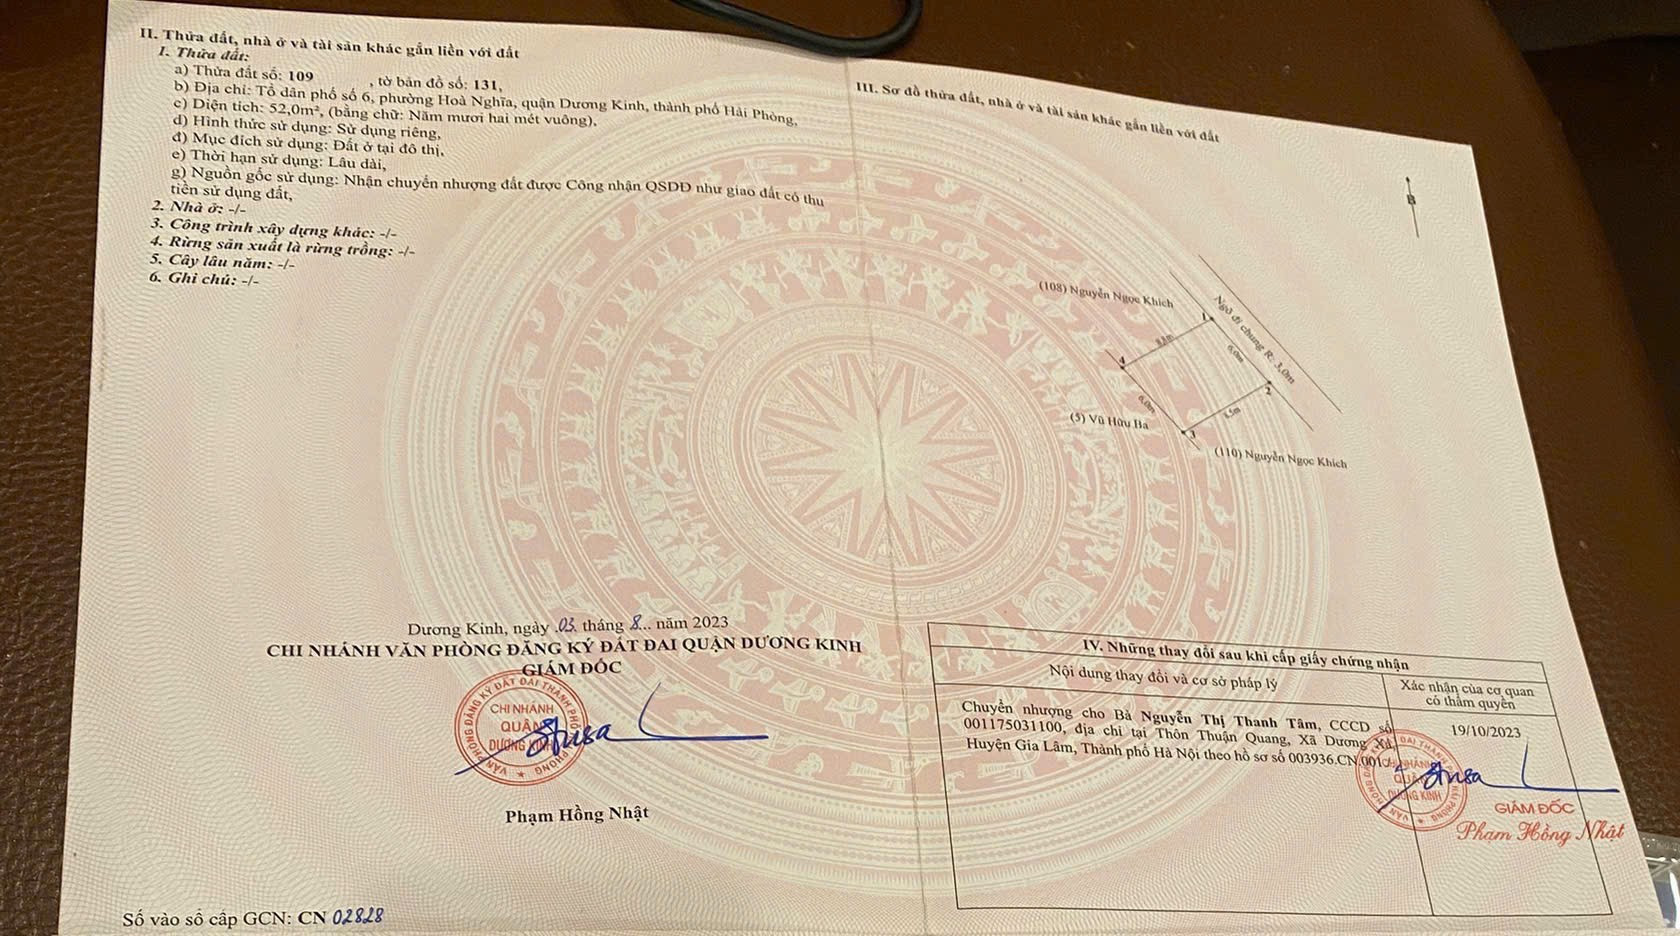 II. Thửa đất, nhà ở và tài sản khác gắn liền với đất
1. Thửa đất:
a) Thửa đất số: 109 , tờ bản đồ số: 131,
b) Địa chỉ: Tổ dân phố số 6, phường Hoà Nghĩa, quận Dương Kinh, thành phố Hải Phòng,
c) Diện tích: 52,0m², (bằng chữ: Năm mươi hai mét vuông),
d) Hình thức sử dụng: Sử dụng riêng,
đ) Mục đích sử dụng: Đất ở tại đô thị,
e) Thời hạn sử dụng: Lâu dài,
g) Nguồn gốc sử dụng: Nhận chuyển nhượng đất được Công nhận QSDĐ như giao đất có thu
tiền sử dụng đất,
2. Nhà ở: -/-
3. Công trình xây dựng khác: -/-
4. Rừng sản xuất là rừng trồng: -/-
5. Cây lâu năm: -/-
6. Ghi chú: -/-
Dương Kinh, ngày 03. tháng 8... năm 2023
CHI NHÁNH VĂN PHÒNG ĐĂNG KÝ ĐẤT ĐAI QUẬN DƯƠNG KINH
GIÁM ĐỐC
VĂN PHÒNG ĐĂNG KÝ ĐẤT ĐAI THÀNH PHỐ PHÒNG
CHI NHÁNH
QUẬN
DƯƠNG KINH
Phạm Hồng Nhật
Số vào sổ cấp GCN: CN 02828
III. Sơ đồ thửa đất, nhà ở và tài sản khác gắn liền với đất
B
(108) Nguyễn Ngọc Khich
Ngõ đi chung R: 3,0m
1
6,0m
4
2
6,0m
(5) Vũ Hữu Ba
3
(110) Nguyễn Ngọc Khich
IV. Những thay đổi sau khi cấp giấy chứng nhận
Nội dung thay đổi và cơ sở pháp lý
Xác nhận của cơ quan
có thẩm quyền
Chuyển nhượng cho Bà Nguyễn Thị Thanh Tâm, CCCD số
001175031100, địa chỉ tại Thôn Thuận Quang, Xã Dương Xá,
Huyện Gia Lâm, Thành phố Hà Nội theo hồ sơ số 003936.CN.001
19/10/2023
NHÁNH
QUẬN
DƯƠNG KINH
GIÁM ĐỐC
Phạm Hồng Nhật